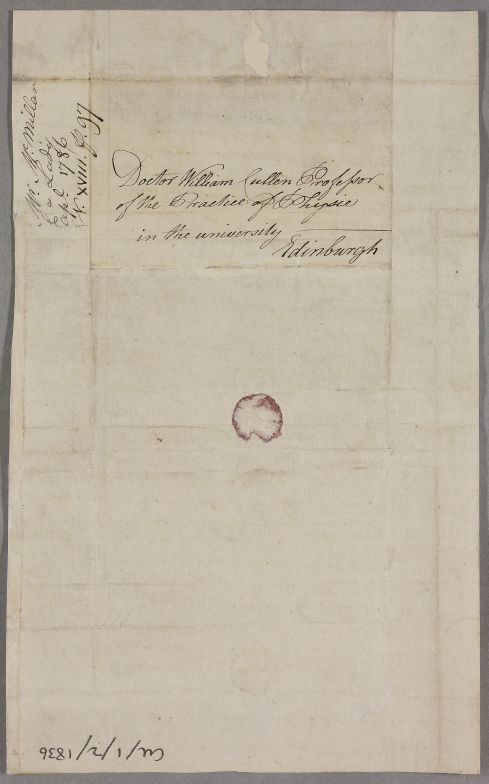 Mr. McMillan
C a Lady
apl. 1786
V. XVIII. p. 67
Doctor William Cullen Professor
of the Practice of Physic
in the university
Edinburgh
CUL/1/2/1836